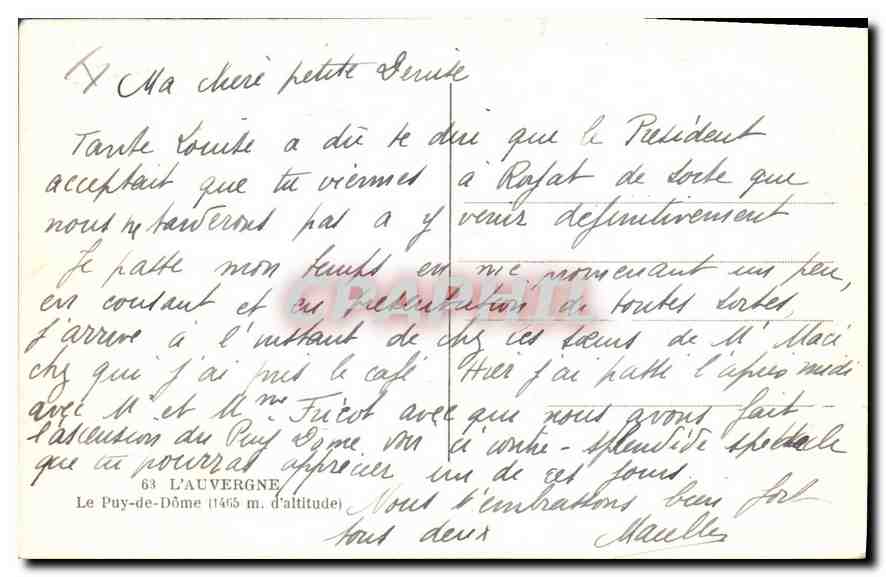 Ma chère petite Denise
Tante Louise a dû te dire que le Président
acceptait que tu viennes à Royat de sorte que
nous ne tarderons pas a y venir définitivement
Je passe mon temps en me promenant un peu,
en cousant et en de toutes sortes,
j'arrive à l'instant de chez les sœurs de Mr Macé
chez qui j'ai pris le café. Hier j'ai passé l'après midi
avec Mr et Mme Fricot avec qui nous avons fait
l'ascension du Puy Dome voir ci contre - splendide spectacle
que tu pourras apprécier un de ces jours.
63 L'AUVERGNE
Le Puy-de-Dôme (1465 m. d'altitude)
Nous t'embrassons bien fort
tous deux
Marcelle
CPAPHIL